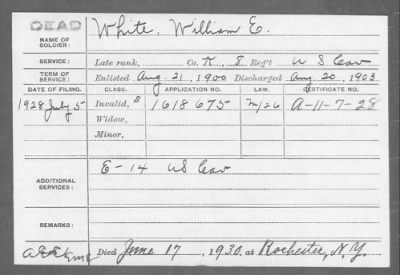 DEAD
NAME OF SOLDIER: White, William E.
SERVICE: Late rank, Co. K, 8 Reg't U S Cav
TERM OF SERVICE: Enlisted Aug. 21, 1900 Discharged Aug. 20, 1903
DATE OF FILING. CLASS. APPLICATION NO. LAW. CERTIFICATE NO.
1928 July 5 Invalid, B 1618675 m/26 A-11-7-28
Widow,
Minor,
ADDITIONAL SERVICES: E-14 US Cav
REMARKS:
Died June 17, 1930, at Rochester, N.Y.